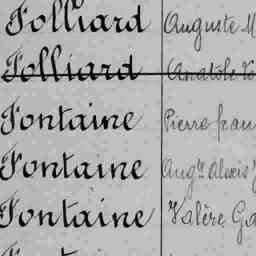 Folliard Auguste M
Folliard Anatole
Fontaine Pierre fran
Fontaine Aug.te Alexis
Fontaine Valère Ga